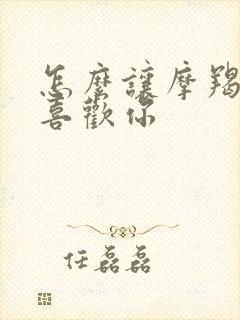 怎麼讓摩羯
喜歡你
任磊磊